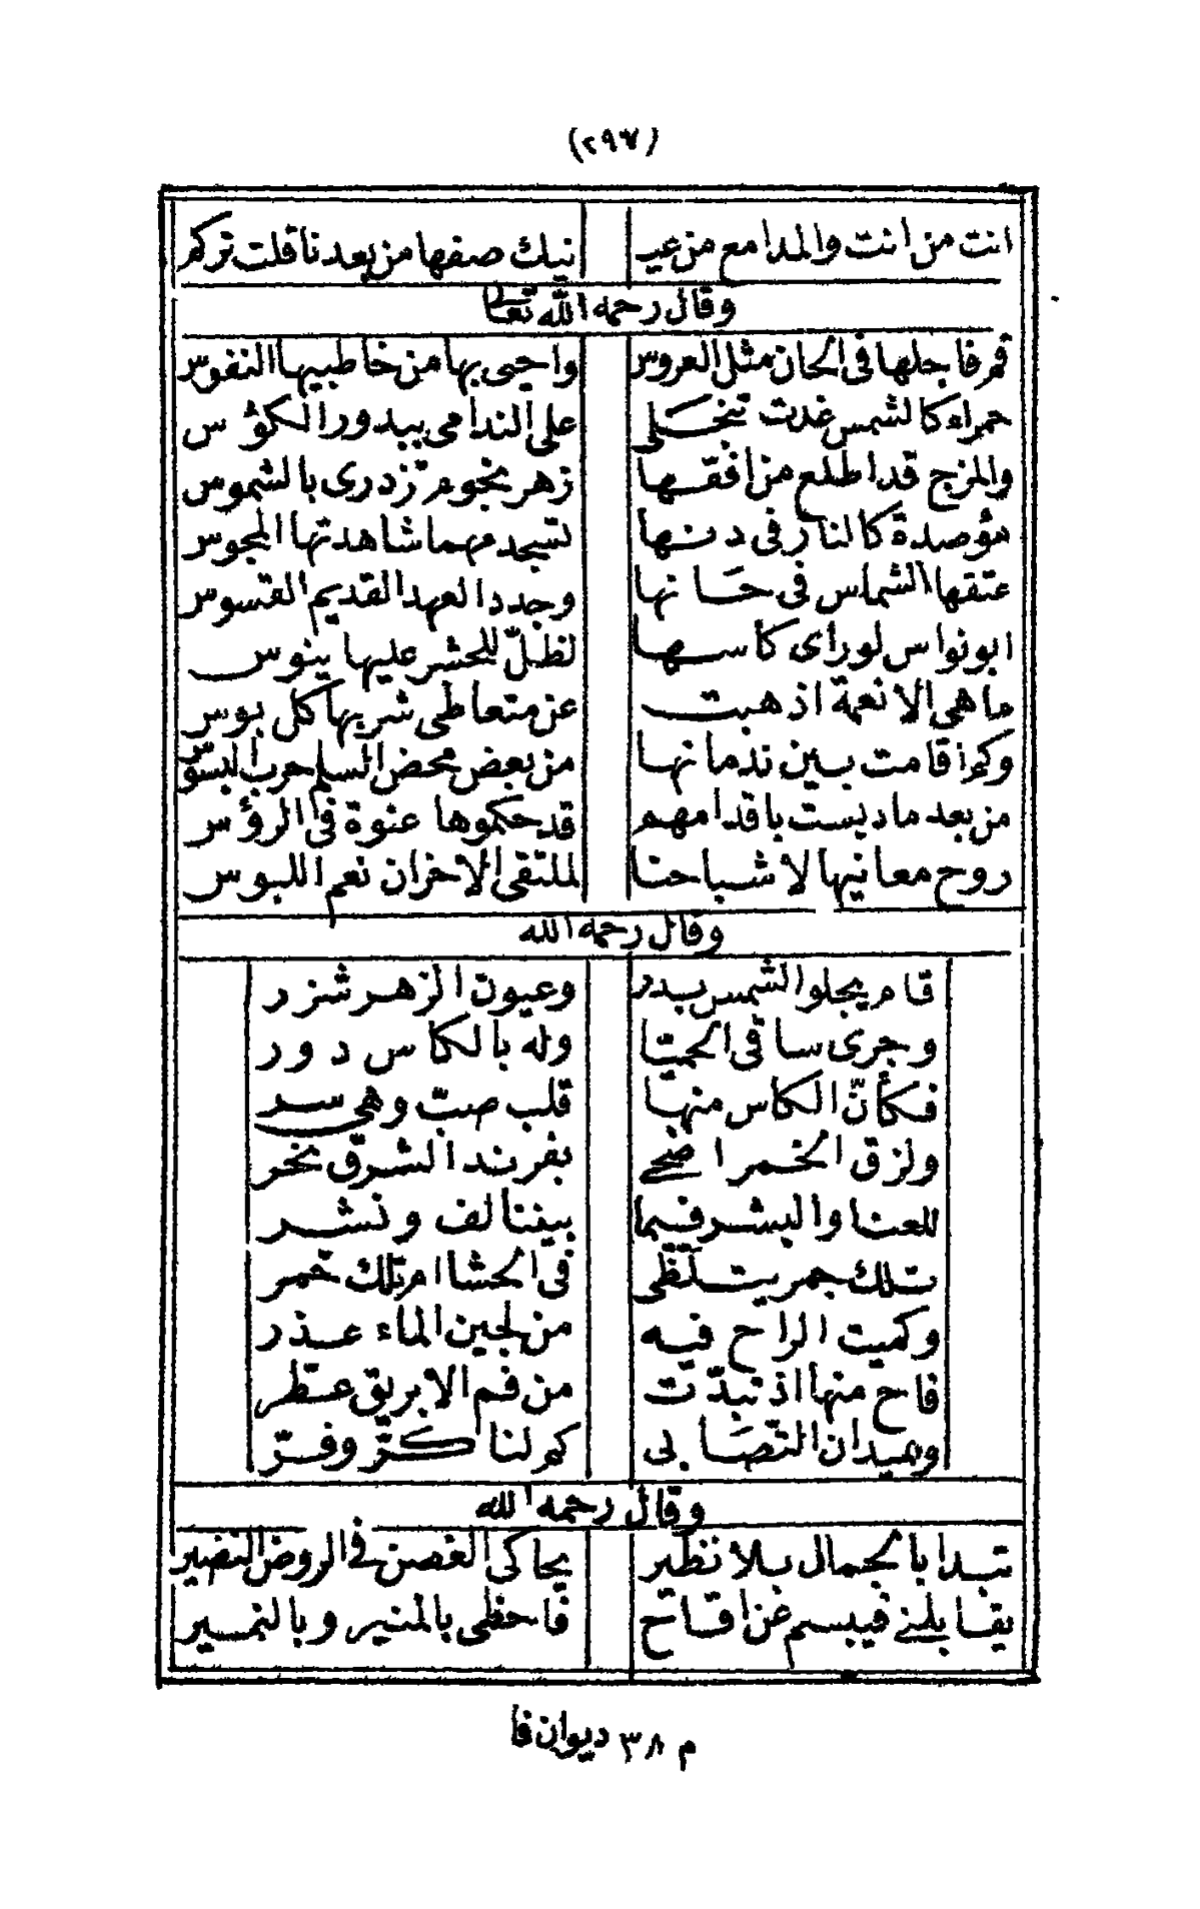 (٢٩٧)
انت من انت والمدامع من عيـ نيك صفها من بعدنا قلت تركم
وقال رحمه الله تعالى
قم فاجلها فى الحان مثل العروس واحيى بها من خاطبيها النفوس
حمراء كالشمس غدت تنجلى على الندامى ببدور الكؤس
والمزج قد اطلع من افقها زهر نجوم تزدرى بالشموس
مؤصدة كالنار فى دنها تسجد مهما شاهدتها المجوس
عتقها الشماس فى حانها وجدد العهد القديم القسوس
ابو نواس لو راى كاسها لظل للحشر عليها ينوس
ما هى الا نعمة اذهبت عن متعاطى شربها كل بوس
وكم اقامت بين ندمانها من بعض محض السلم حرب البسوس
من بعد ما ديست باقدامهم قد حكموها عنوة فى الرؤس
روح معانيها لاشباحنا لملتقى الاخران نعم اللبوس
وقال رحمه الله
قام يجلو الشمس بدر وعيون الزهر شزر
وجرى ساقى الحميّا وله بالكاس دور
فكأنّ الكاس منها قلب صبّ وهى سر
ولزق الخمر اضحى بفرند الشرق نحر
للعنا والبشر فيما بيننا لف ونشر
تلك جمر يتلظّى فى الحشا ام تلك خمر
وكميت الراح فيه من لجين الماء عذر
فاح منها اذ تبدّت من فم الابريق عطر
وبميدان التصابى كم لنا كرّ وفرّ
وقال رحمه الله
تبدا بالجمال بلا نظير يحاكى الغصن فى الروض النضير
يقابلنى فيبسم عن اقاح فاحظى بالمنير وبالنمير
م ٣٨ ديوان فا